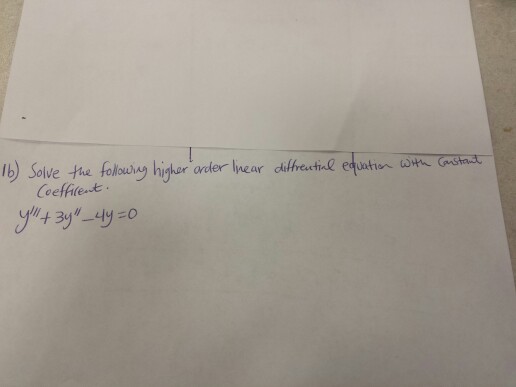 1b) Solve the following higher order linear diffrential equation with Constant
Coefficent.
y''' + 3y'' - 4y = 0